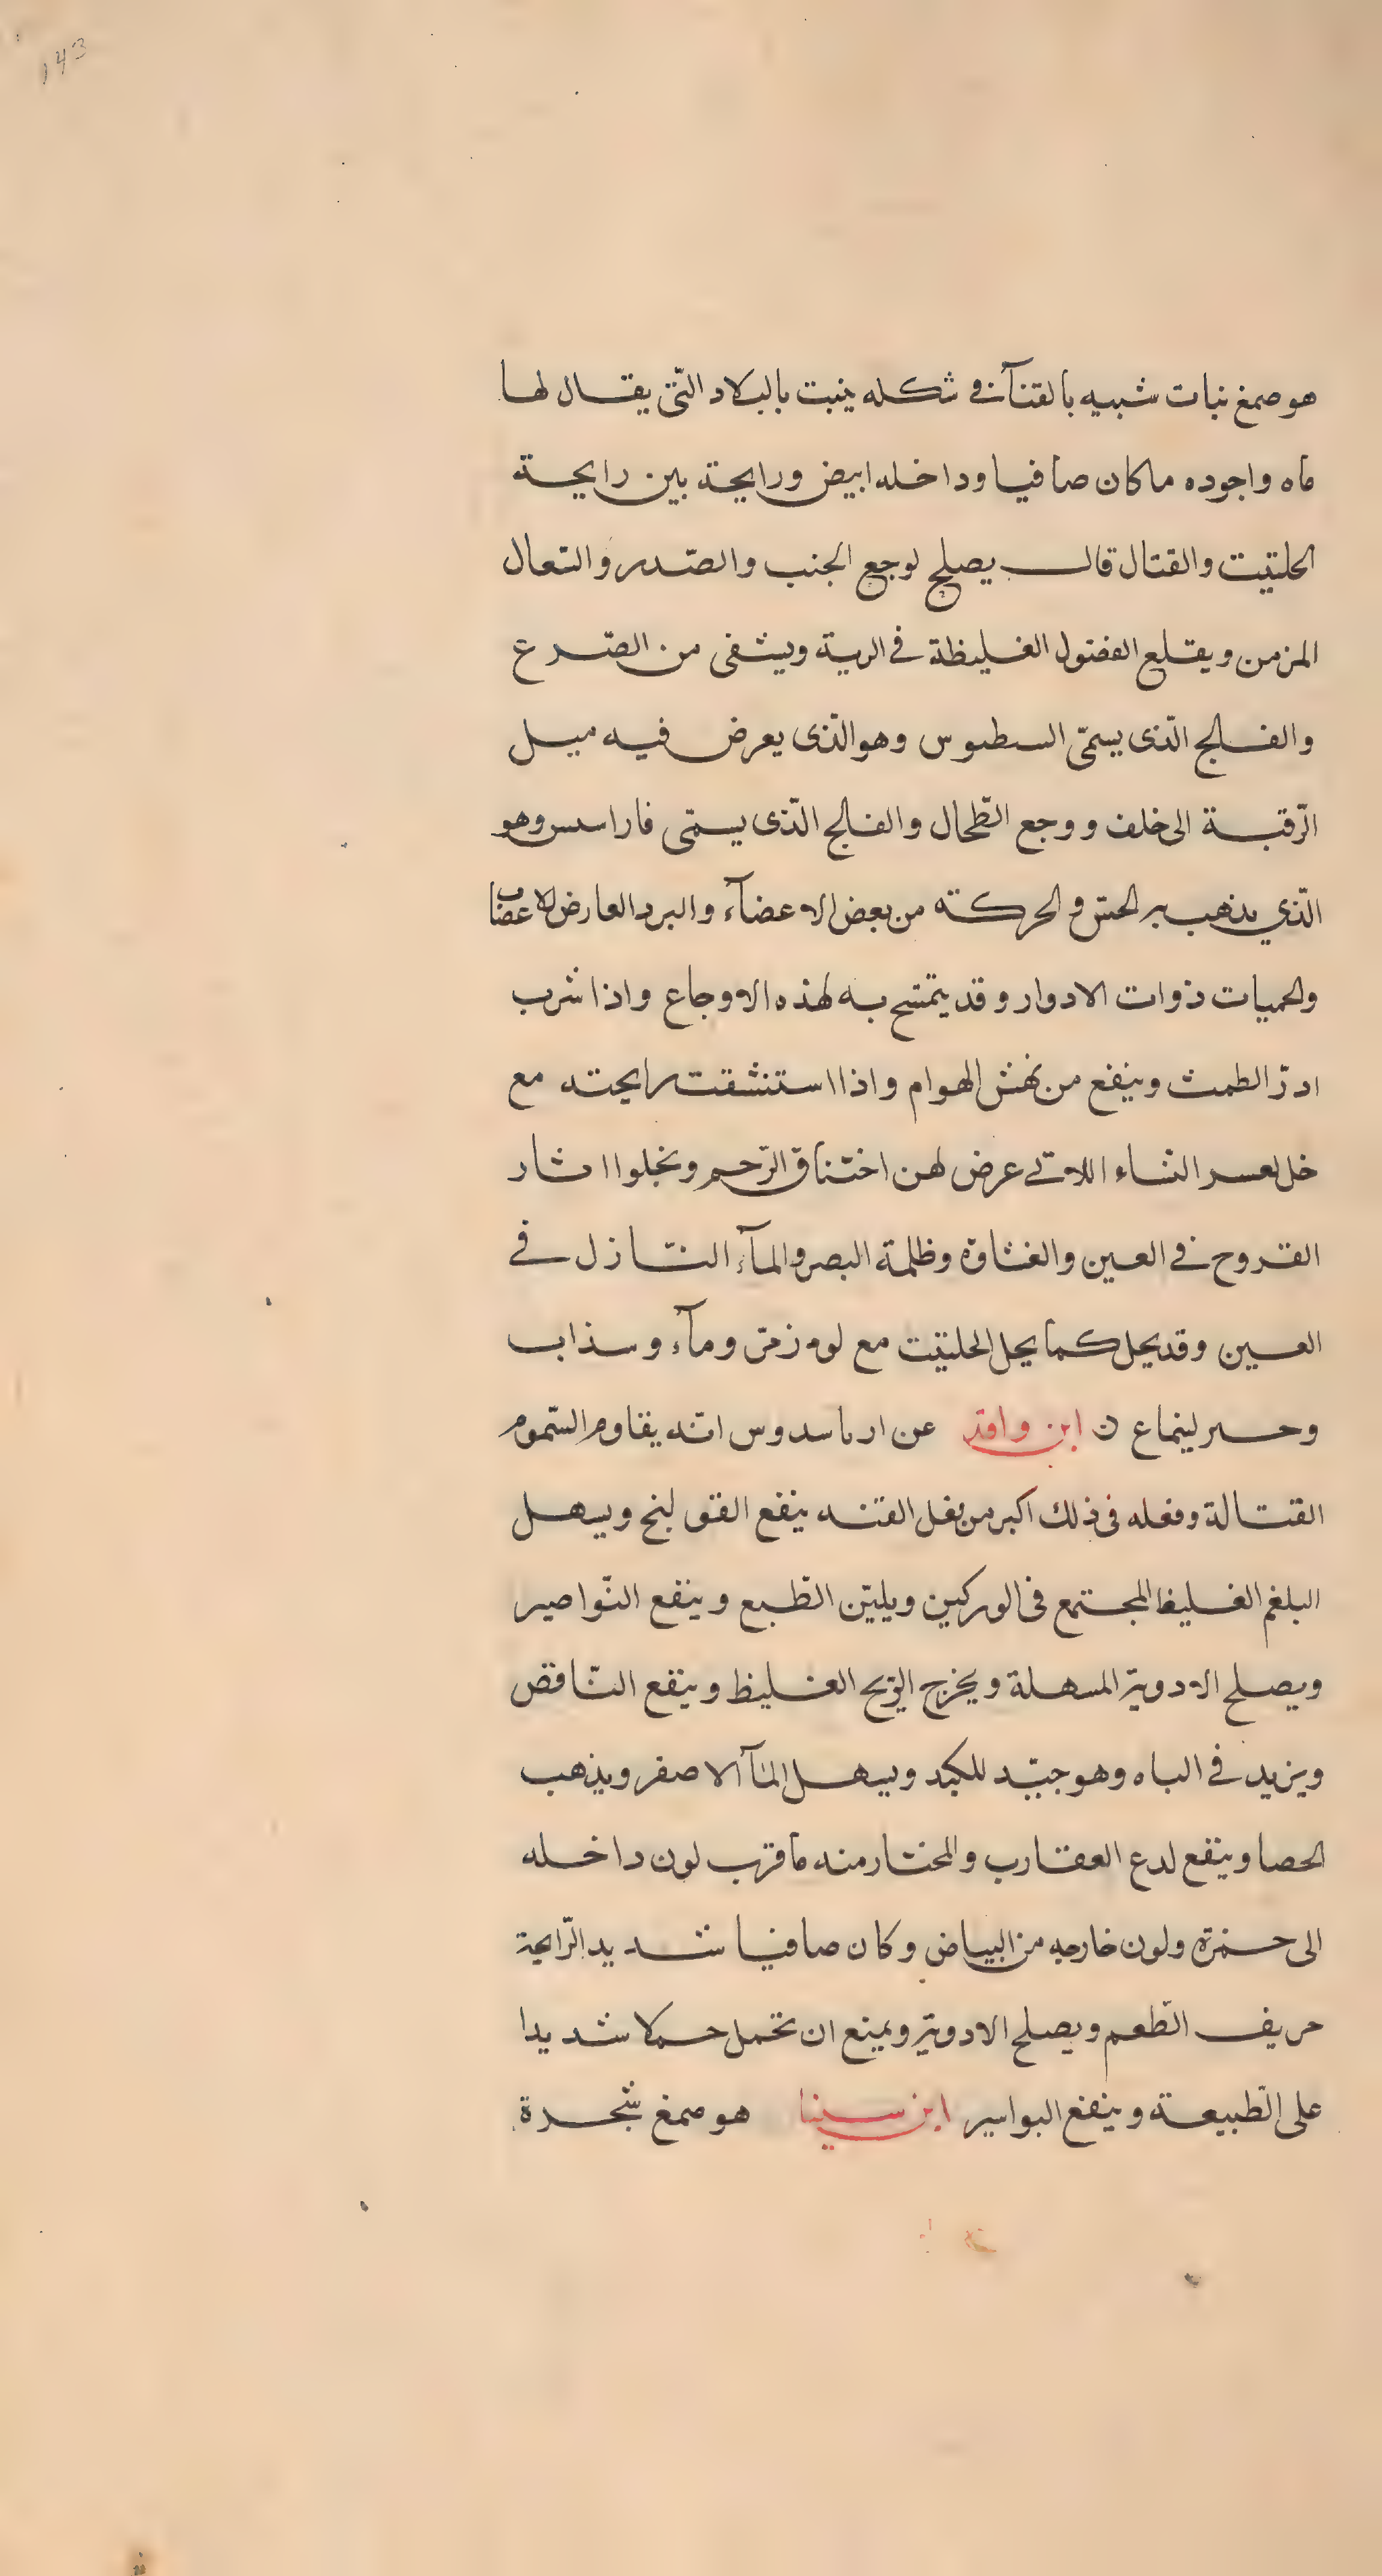 143
هو صمغ نبات شبيه بالقنآ فى شكله ينبت بالبلاد التّى يقال لها
ماه واجوده ما كان صافيا وداخله ابيض ورايحة بين رايحة
الحلتيت والقتال قال يصلح لوجع الجنب والصّدر والسّعال
المزمن ويقلع الفضول الغليظة فى الرية ويشفى من الصّرع
والفالج الّذى يسمّى السطوس وهو الّذى يعرض فيه ميل
الرّقبة الى خلف ووجع الطّحال والفالج الّذى يسمّى فاراسس وهو
الّذي يذهب بر الحسّ والحركة من بعض الاعضآء والبرد العارض للاعضاب
والحميات ذوات الادوار وقد يتمسّح به لهذه الاوجاع واذا شرب
ادرّ الطمث وينفع من نهش الهوام واذا استنشقت رايحته مع
خل لعسر النّساء اللاتى عرض لهن اختناق الرّحم ونجلوا اثار
القروح فى العين والغشاوة وظلمة البصر والمآء النّازل فى
العين وقد يحل كما يحل الحلتيت مع لوزمرّ ومآء وسذاب
وحسر لينماع ن ابن وافد عن ارىاسدوس انّه يقاوم السّموم
القتّالة وفعله فى ذلك اكبر من فعل القنّه ينفع القولنج ويسهل
البلغم الغليظ المجتمع فى الوركين ويليّن الطّبع وينفع النّواصير
ويصلح الادوية المسهلة ويخرج الرّيح الغليظ وينفع النّافض
ويزيد فى الباه وهو جيّد للكبد ويسهل المآ الاصفر ويذهب
الحصا وينفع لدع العقارب والمختار منه ما قرب لون داخله
الى حمرة ولون خارجه من البياض وكان صافيا شديد الرّايحة
حريف الطّعم ويصلح الادوية ويمنع ان تحمل حملا شديدا
على الطّبيعة وينفع البواسير ابن سينا هو صمغ شجرة